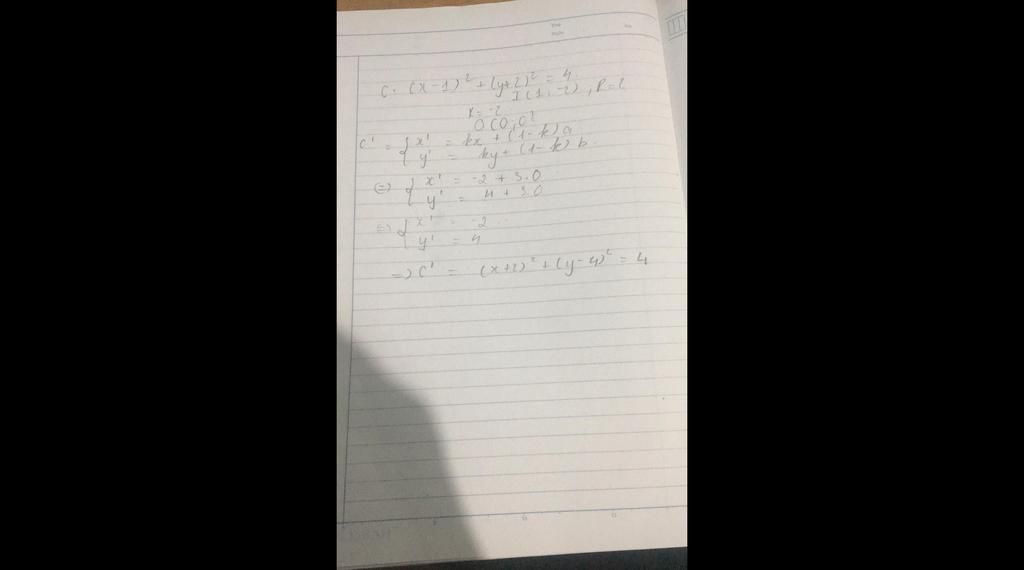 C. (x-1)² + (y+2)² = 4.
I(1;-2), R=2
K=-2
O(0;0)
C' = { x' = kx + (1-k)a
y' = ky + (1-k)b.
(=) { x' = -2 + 3.0
y' = 4 + 3.0
(=) { x' = -2
y' = 4
=) C' = (x+2)² + (y-4)² = 4